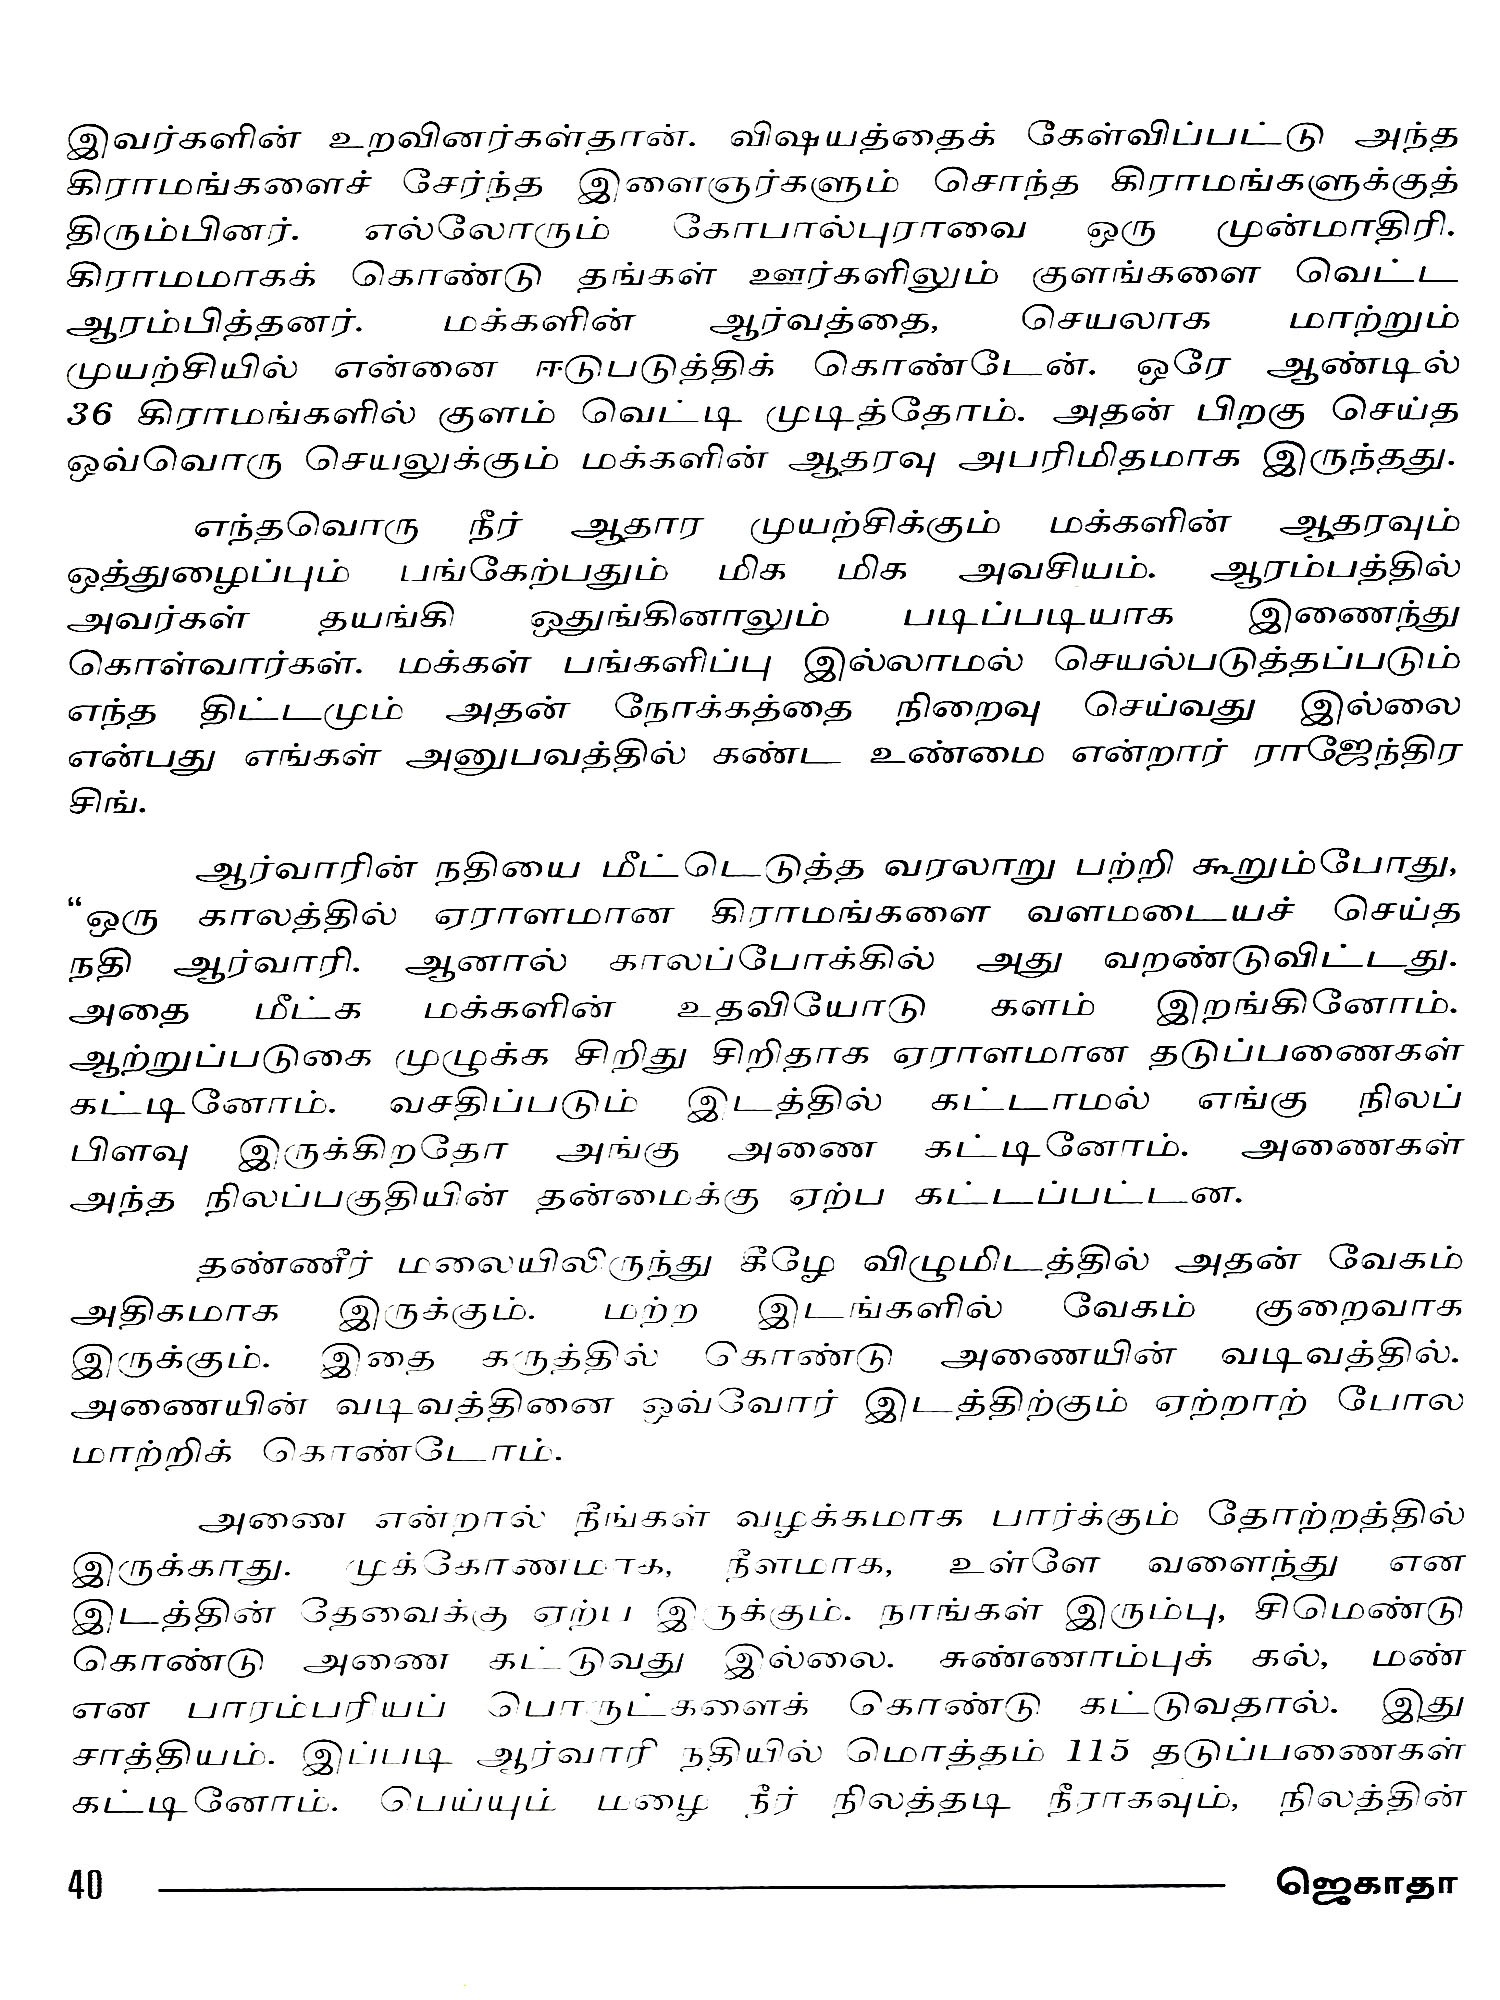 இவர்களின் உறவினர்கள்தான். விஷயத்தைக் கேள்விப்பட்டு அந்த
கிராமங்களைச் சேர்ந்த இளைஞர்களும் சொந்த கிராமங்களுக்குத்
திரும்பினர். எல்லோரும் கோபால்புராவை ஒரு முன்மாதிரி.
கிராமமாகக் கொண்டு தங்கள் ஊர்களிலும் குளங்களை வெட்ட
ஆரம்பித்தனர். மக்களின் ஆர்வத்தை, செயலாக மாற்றும்
முயற்சியில் என்னை ஈடுபடுத்திக் கொண்டேன். ஒரே ஆண்டில்
36 கிராமங்களில் குளம் வெட்டி முடித்தோம். அதன் பிறகு செய்த
ஒவ்வொரு செயலுக்கும் மக்களின் ஆதரவு அபரிமிதமாக இருந்தது.
எந்தவொரு நீர் ஆதார முயற்சிக்கும் மக்களின் ஆதரவும்
ஒத்துழைப்பும் பங்கேற்பதும் மிக மிக அவசியம். ஆரம்பத்தில்
அவர்கள் தயங்கி ஒதுங்கினாலும் படிப்படியாக இணைந்து
கொள்வார்கள். மக்கள் பங்களிப்பு இல்லாமல் செயல்படுத்தப்படும்
எந்த திட்டமும் அதன் நோக்கத்தை நிறைவு செய்வது இல்லை
என்பது எங்கள் அனுபவத்தில் கண்ட உண்மை என்றார் ராஜேந்திர
சிங்.
ஆர்வாரின் நதியை மீட்டெடுத்த வரலாறு பற்றி கூறும்போது,
“ஒரு காலத்தில் ஏராளமான கிராமங்களை வளமடையச் செய்த
நதி ஆர்வாரி. ஆனால் காலப்போக்கில் அது வறண்டுவிட்டது.
அதை மீட்க மக்களின் உதவியோடு களம் இறங்கினோம்.
ஆற்றுப்படுகை முழுக்க சிறிது சிறிதாக ஏராளமான தடுப்பணைகள்
கட்டினோம். வசதிப்படும் இடத்தில் கட்டாமல் எங்கு நிலப்
பிளவு இருக்கிறதோ அங்கு அணை கட்டினோம். அணைகள்
அந்த நிலப்பகுதியின் தன்மைக்கு ஏற்ப கட்டப்பட்டன.
தண்ணீர் மலையிலிருந்து கீழே விழுமிடத்தில் அதன் வேகம்
அதிகமாக இருக்கும். மற்ற இடங்களில் வேகம் குறைவாக
இருக்கும். இதை கருத்தில் கொண்டு அணையின் வடிவத்தில்.
அணையின் வடிவத்தினை ஒவ்வோர் இடத்திற்கும் ஏற்றாற் போல
மாற்றிக் கொண்டோம்.
அணை என்றால் நீங்கள் வழக்கமாக பார்க்கும் தோற்றத்தில்
இருக்காது. முக்கோணமாக, நீளமாக, உள்ளே வளைந்து என
இடத்தின் தேவைக்கு ஏற்ப இருக்கும். நாங்கள் இரும்பு, சிமெண்டு
கொண்டு அணை கட்டுவது இல்லை. சுண்ணாம்புக் கல், மண்
என பாரம்பரியப் பொருட்களைக் கொண்டு கட்டுவதால். இது
சாத்தியம். இப்படி ஆர்வாரி நதியில் மொத்தம் 115 தடுப்பணைகள்
கட்டினோம். பெய்யும் மழை நீர் நிலத்தடி நீராகவும், நிலத்தின்
40 ஜெகாதா